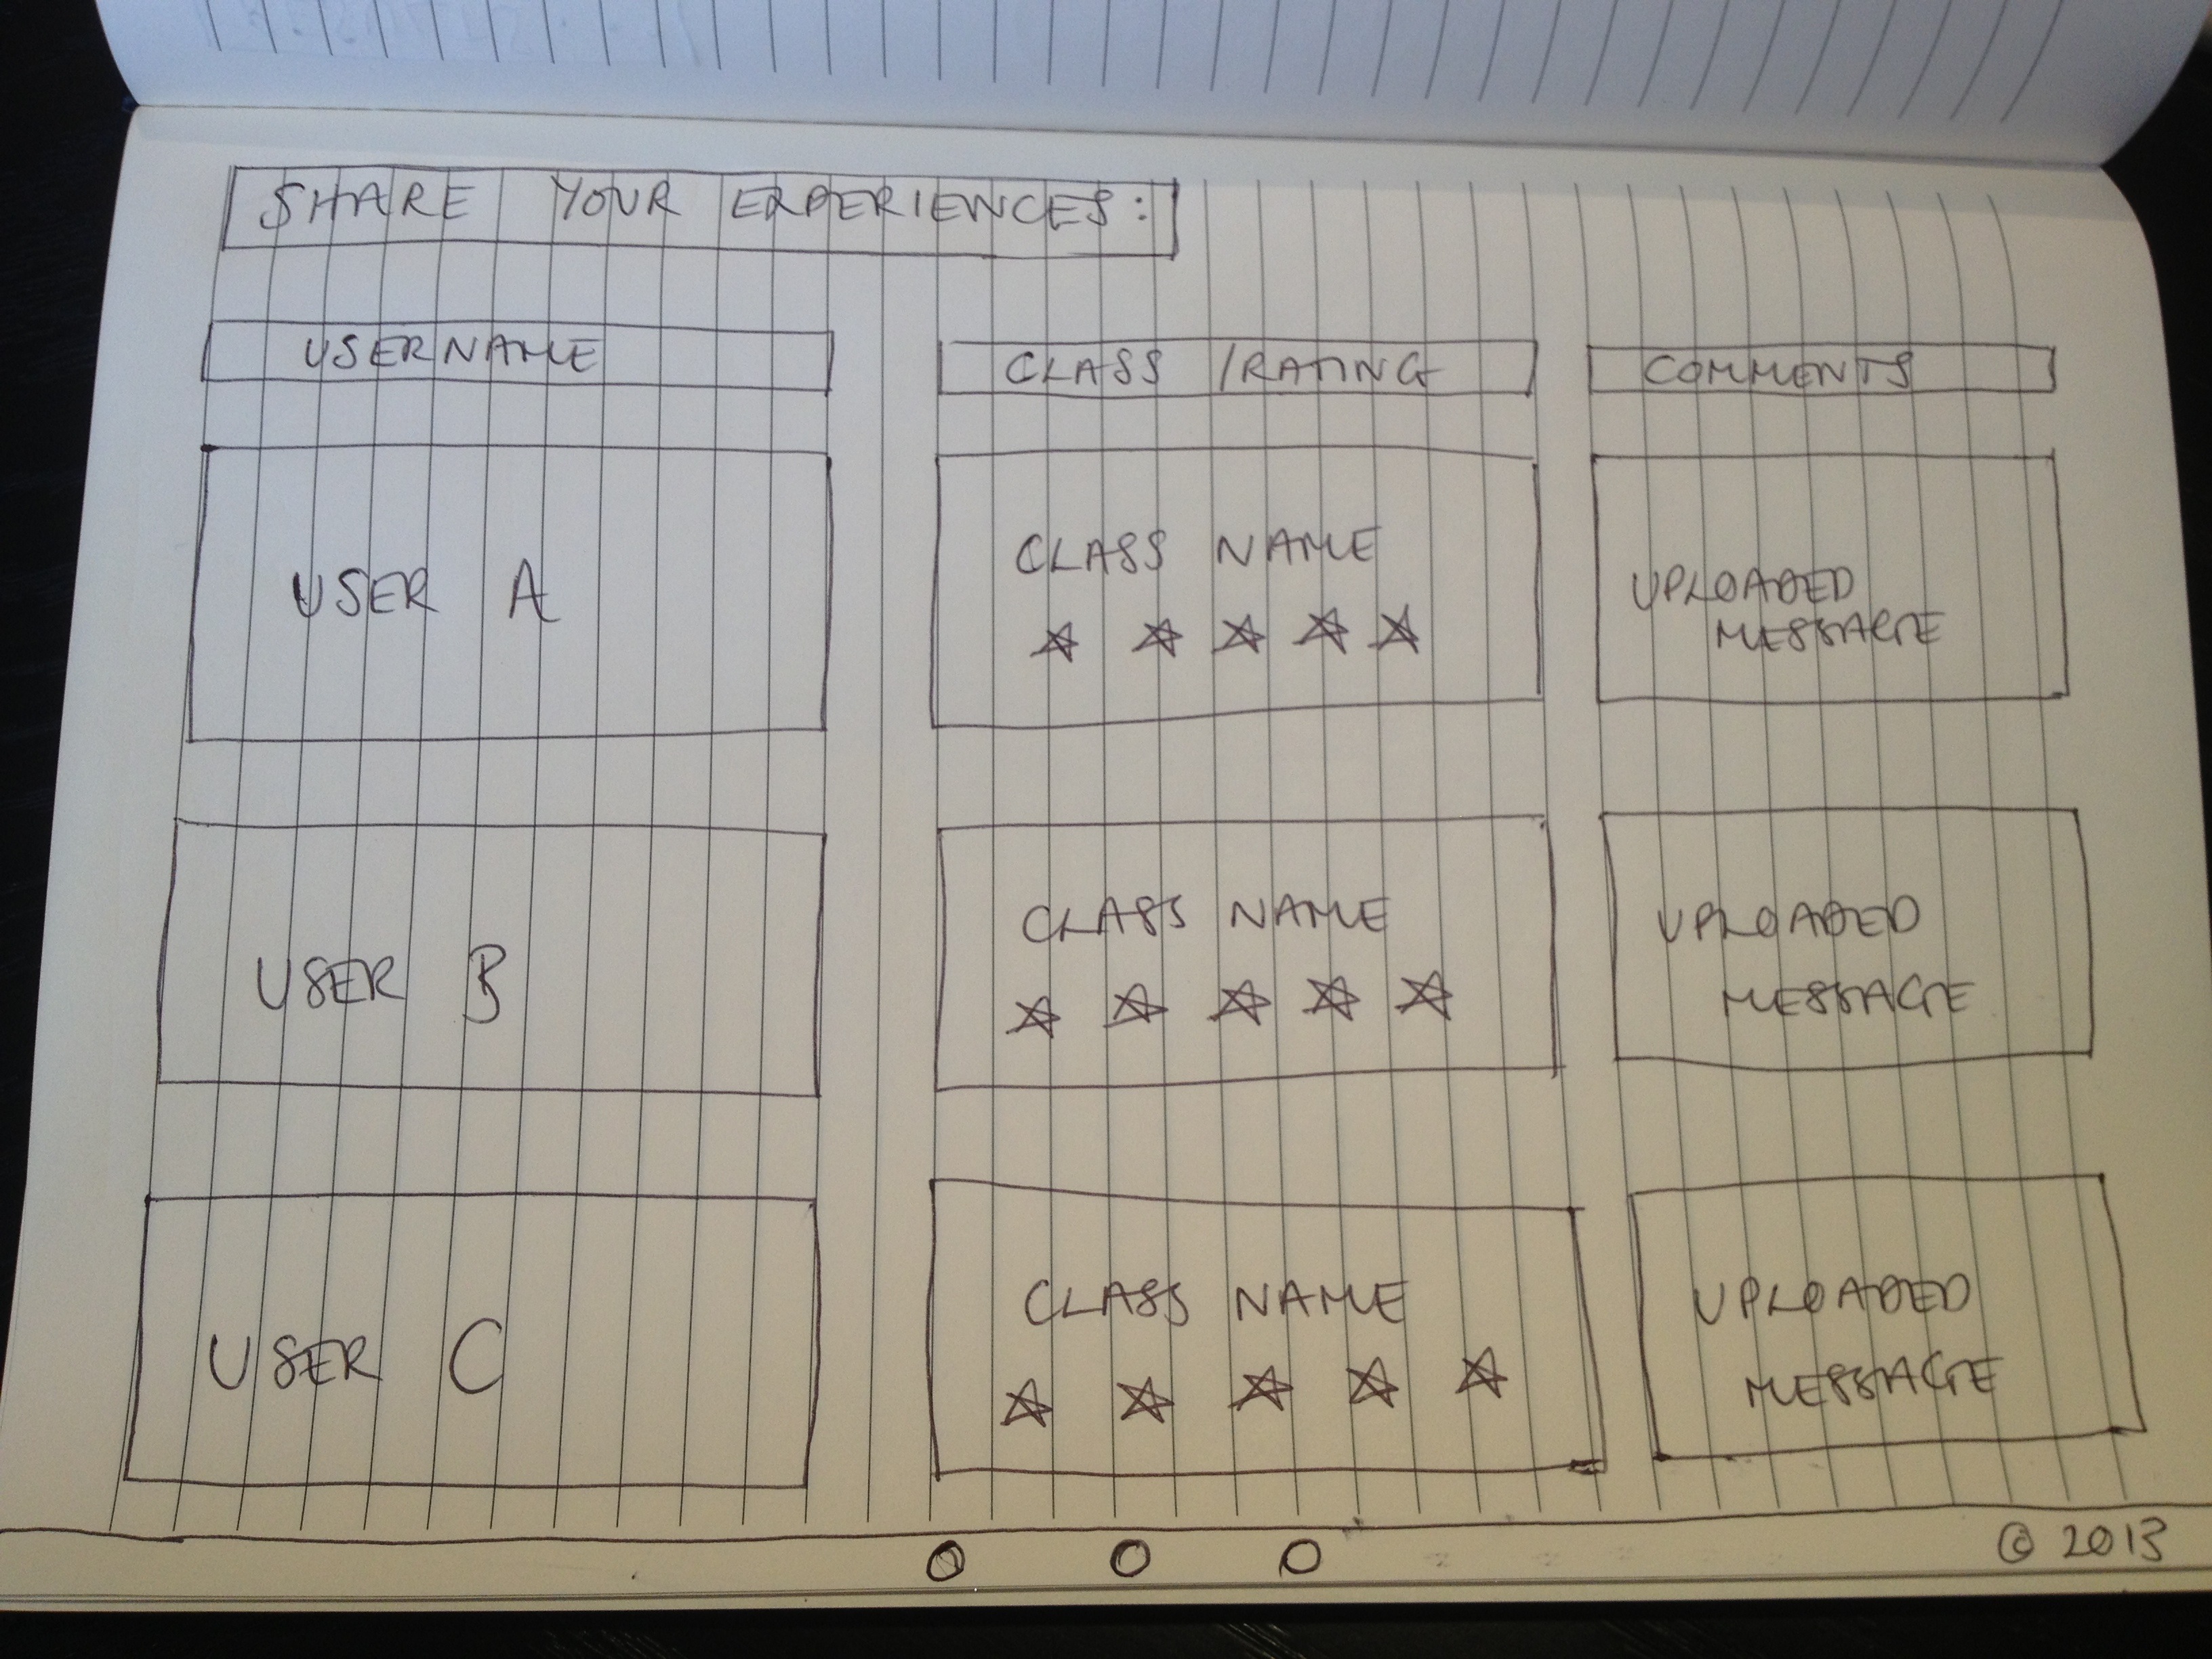 SHARE YOUR EXPERIENCES:
USERNAME
CLASS /RATING
COMMENTS
USER A
CLASS NAME
UPLOADED
MESSAGE
USER B
CLASS NAME
UPLOADED
MESSAGE
USER C
CLASS NAME
UPLOADED
MESSAGE
© 2013